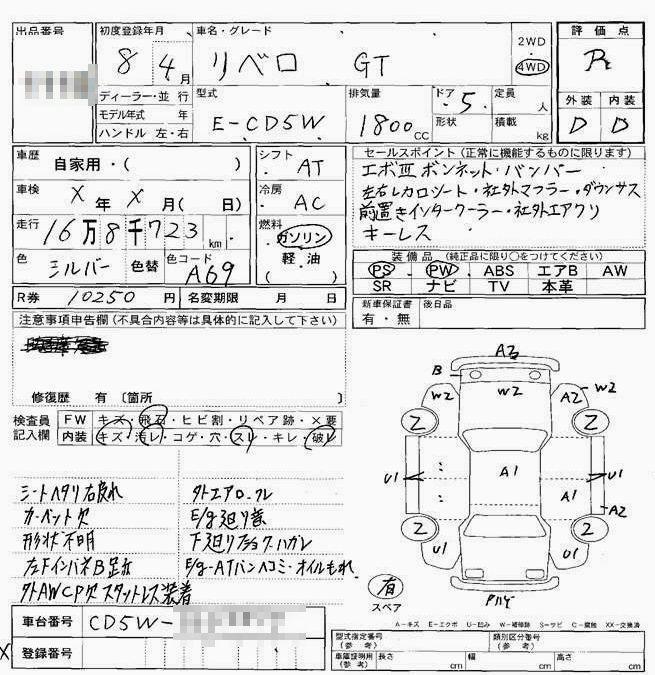 出品番号
初度登録年月 8 4月
車名・グレード リベロ GT
2WD
4WD
評価点 R
ディーラー・並行
モデル年式 年
ハンドル 左・右
型式 E-CD5W
排気量 1800cc
ドア 5
形状
定員 人
積載 kg
外装 D 内装 D
車歴 自家用・( )
シフト AT
車検 X年X月( 日)
冷房 AC
走行 16万8千723km
燃料 ガソリン
軽・油
( )
色 シルバー 色替 色コード A69
R券 10250円 名変期限 月 日
セールスポイント(正常に機能するものに限ります)
エボⅢボンネット・バンパー
左右レカロシート・社外マフラー・ダウンサス
前置きインタークーラー・社外エアクリ
キーレス
装備品(純正品に限り○をつけてください)
PS PW ABS エアB AW
SR ナビ TV 本革
新車保証書 有・無
後日品
注意事項申告欄(不具合内容等は具体的に記入して下さい)
修復歴 有 〔箇所 〕
検査員記入欄
FW キズ・飛石・ヒビ割・リペア跡・X要
内装 キズ・汚レ・コゲ・穴・スレ・キレ・破レ
シートヘタリ右破れ
カーペット欠
形状不明
外エアロ・クレ
E/g廻り
下廻り
ハガレ
E/g-ATバンヘコミ・オイルもれ
外AWCP欠スタットレス装着
A2
B
W2
W2
A2
W2
2
2
U1
A1
A1
U1
A2
2
2
U1
U1
有
スペア
A-キズ E-エクボ U-凹み W-補修跡 S-サビ C-腐蝕 XX-交換済
車台番号 CD5W-
登録番号
X
型式指定番号(参考)
類別区分番号(参考)
車庫証明用(参考) 長さ cm 幅 cm 高さ cm